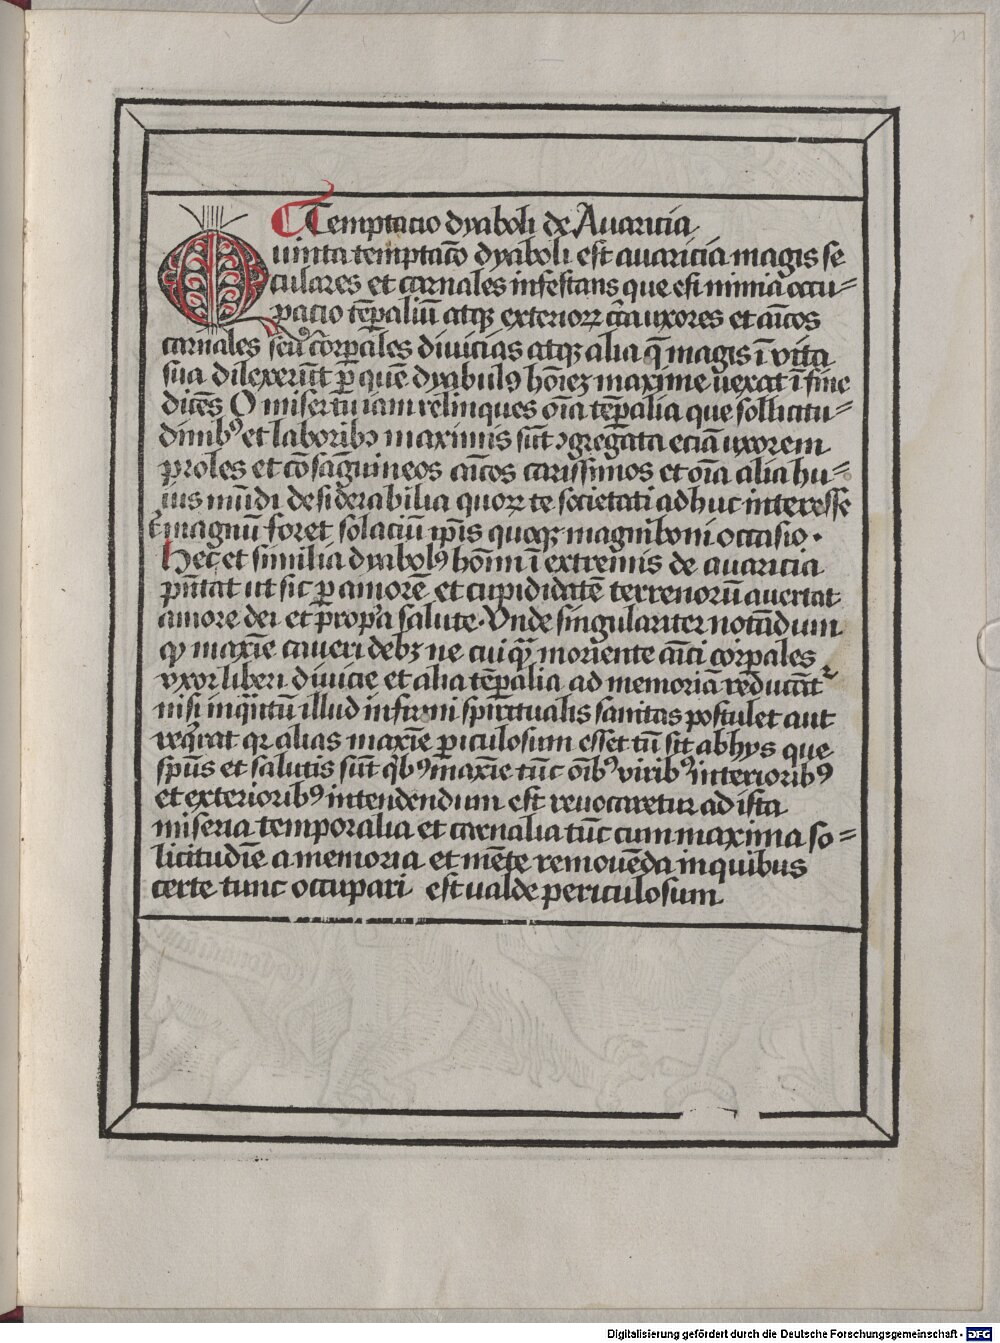 Temptacio dyaboli de Auaricia
Quinta temptacō dyaboli est auaricia magis se
culares et carnales infestans que est nimia occu=
pacio tēp̄aliū atqꝫ exteriorꝝ c̄ca uxores et aīcos
carnales seu corp̄ales diuicias atqꝫ alia q̄ magis ī vita
sua dilexerūt ꝑ quē dyabulꝰ hoīeꝫ maxime uexat ī fine
dicēs O miser tu iam relinques oīa tēp̄alia que sollicitu=
dinibꝰ et laboribꝰ maximis sūt ꝯgregata eciā uxorem
proles et cōsāguineos aīcos carissimos et oīa alia hu=
ius mūdi desiderabilia quorꝝ te societati adhuc interesse
t̄ magnū foret solaciū ip̄is quoqꝫ magni boni occasio .
Hec et similia dyabolꝰ hoīni ī extremis de auaricia
p̄n̄tat ut sic ꝑ amorē et cupididatē terrenorū auertat
amore dei et ꝓpͥa salute . Vnde singulariter notādum
qꝫ maxīe caueri debꝫ ne cuiqͣꝫ moriente aīci corp̄ales
vxor liberi diuicie et alia tēp̄alia ad memoriā reducātʳ
nisi inqͣntū illud infirmi spiritualis sanitas postulet aut
reqͥrat qꝛ alias maxīe ꝑiculosum esset cū sic ab hys que
sp̄us et salutis sūt qͥbꝰ maxīe tūc oībꝰ viribꝰ interioribꝰ
et exterioribꝰ intendendum est reuocaretur ad ista
miseria temporalia et carnalia tūc cum maxima so=
licitudīe a memoria et mēte remouēda in quibus
certe tunc occupari est ualde periculosum
Digitalisierung gefördert durch die Deutsche Forschungsgemeinschaft - DFG